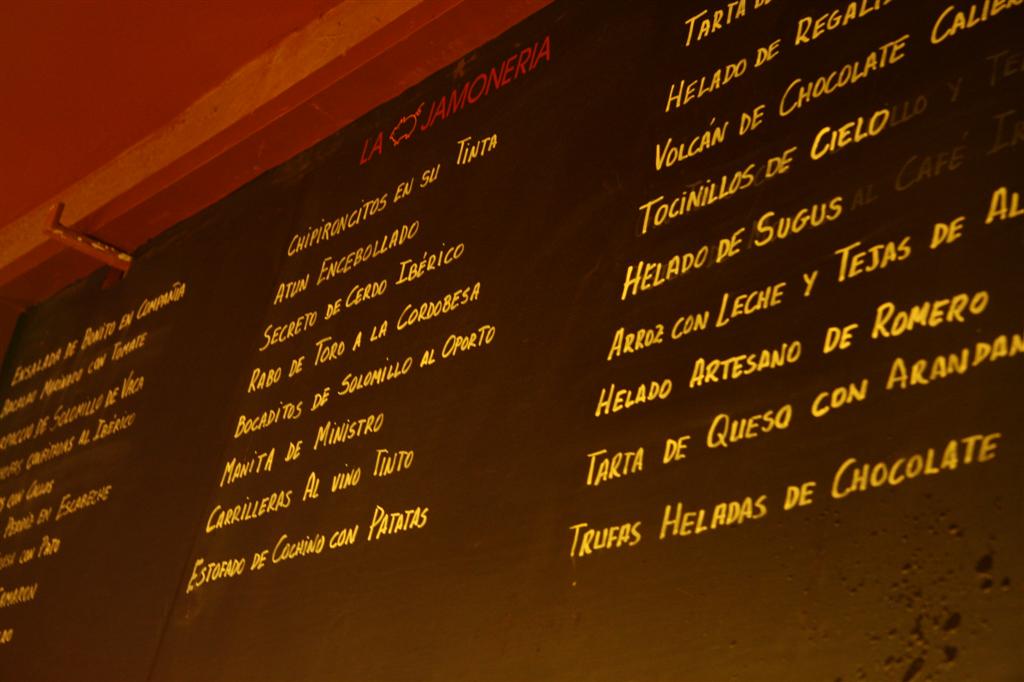 LA JAMONERIA
ENSALADA DE BONITO EN COMPAÑIA
MACHADO CON TOMATE
DE SOLOMILLO DE VACA
CONFITADAS AL IBÉRICO
CON
EN ESCABECHE
CON PATO
CHIPIRONCITOS EN SU TINTA
ATUN ENCEBOLLADO
SECRETO DE CERDO IBÉRICO
RABO DE TORO A LA CORDOBESA
BOCADITOS DE SOLOMILLO AL OPORTO
MANITA DE MINISTRO
CARRILLERAS AL VINO TINTO
ESTOFADO DE COCHINO CON PATATAS
TARTA
HELADO DE
VOLCÁN DE CHOCOLATE
TOCINILLOS DE CIELO
HELADO DE SUGUS
ARROZ CON LECHE Y TEJAS DE
HELADO ARTESANO DE ROMERO
TARTA DE QUESO CON
TRUFAS HELADAS DE CHOCOLATE